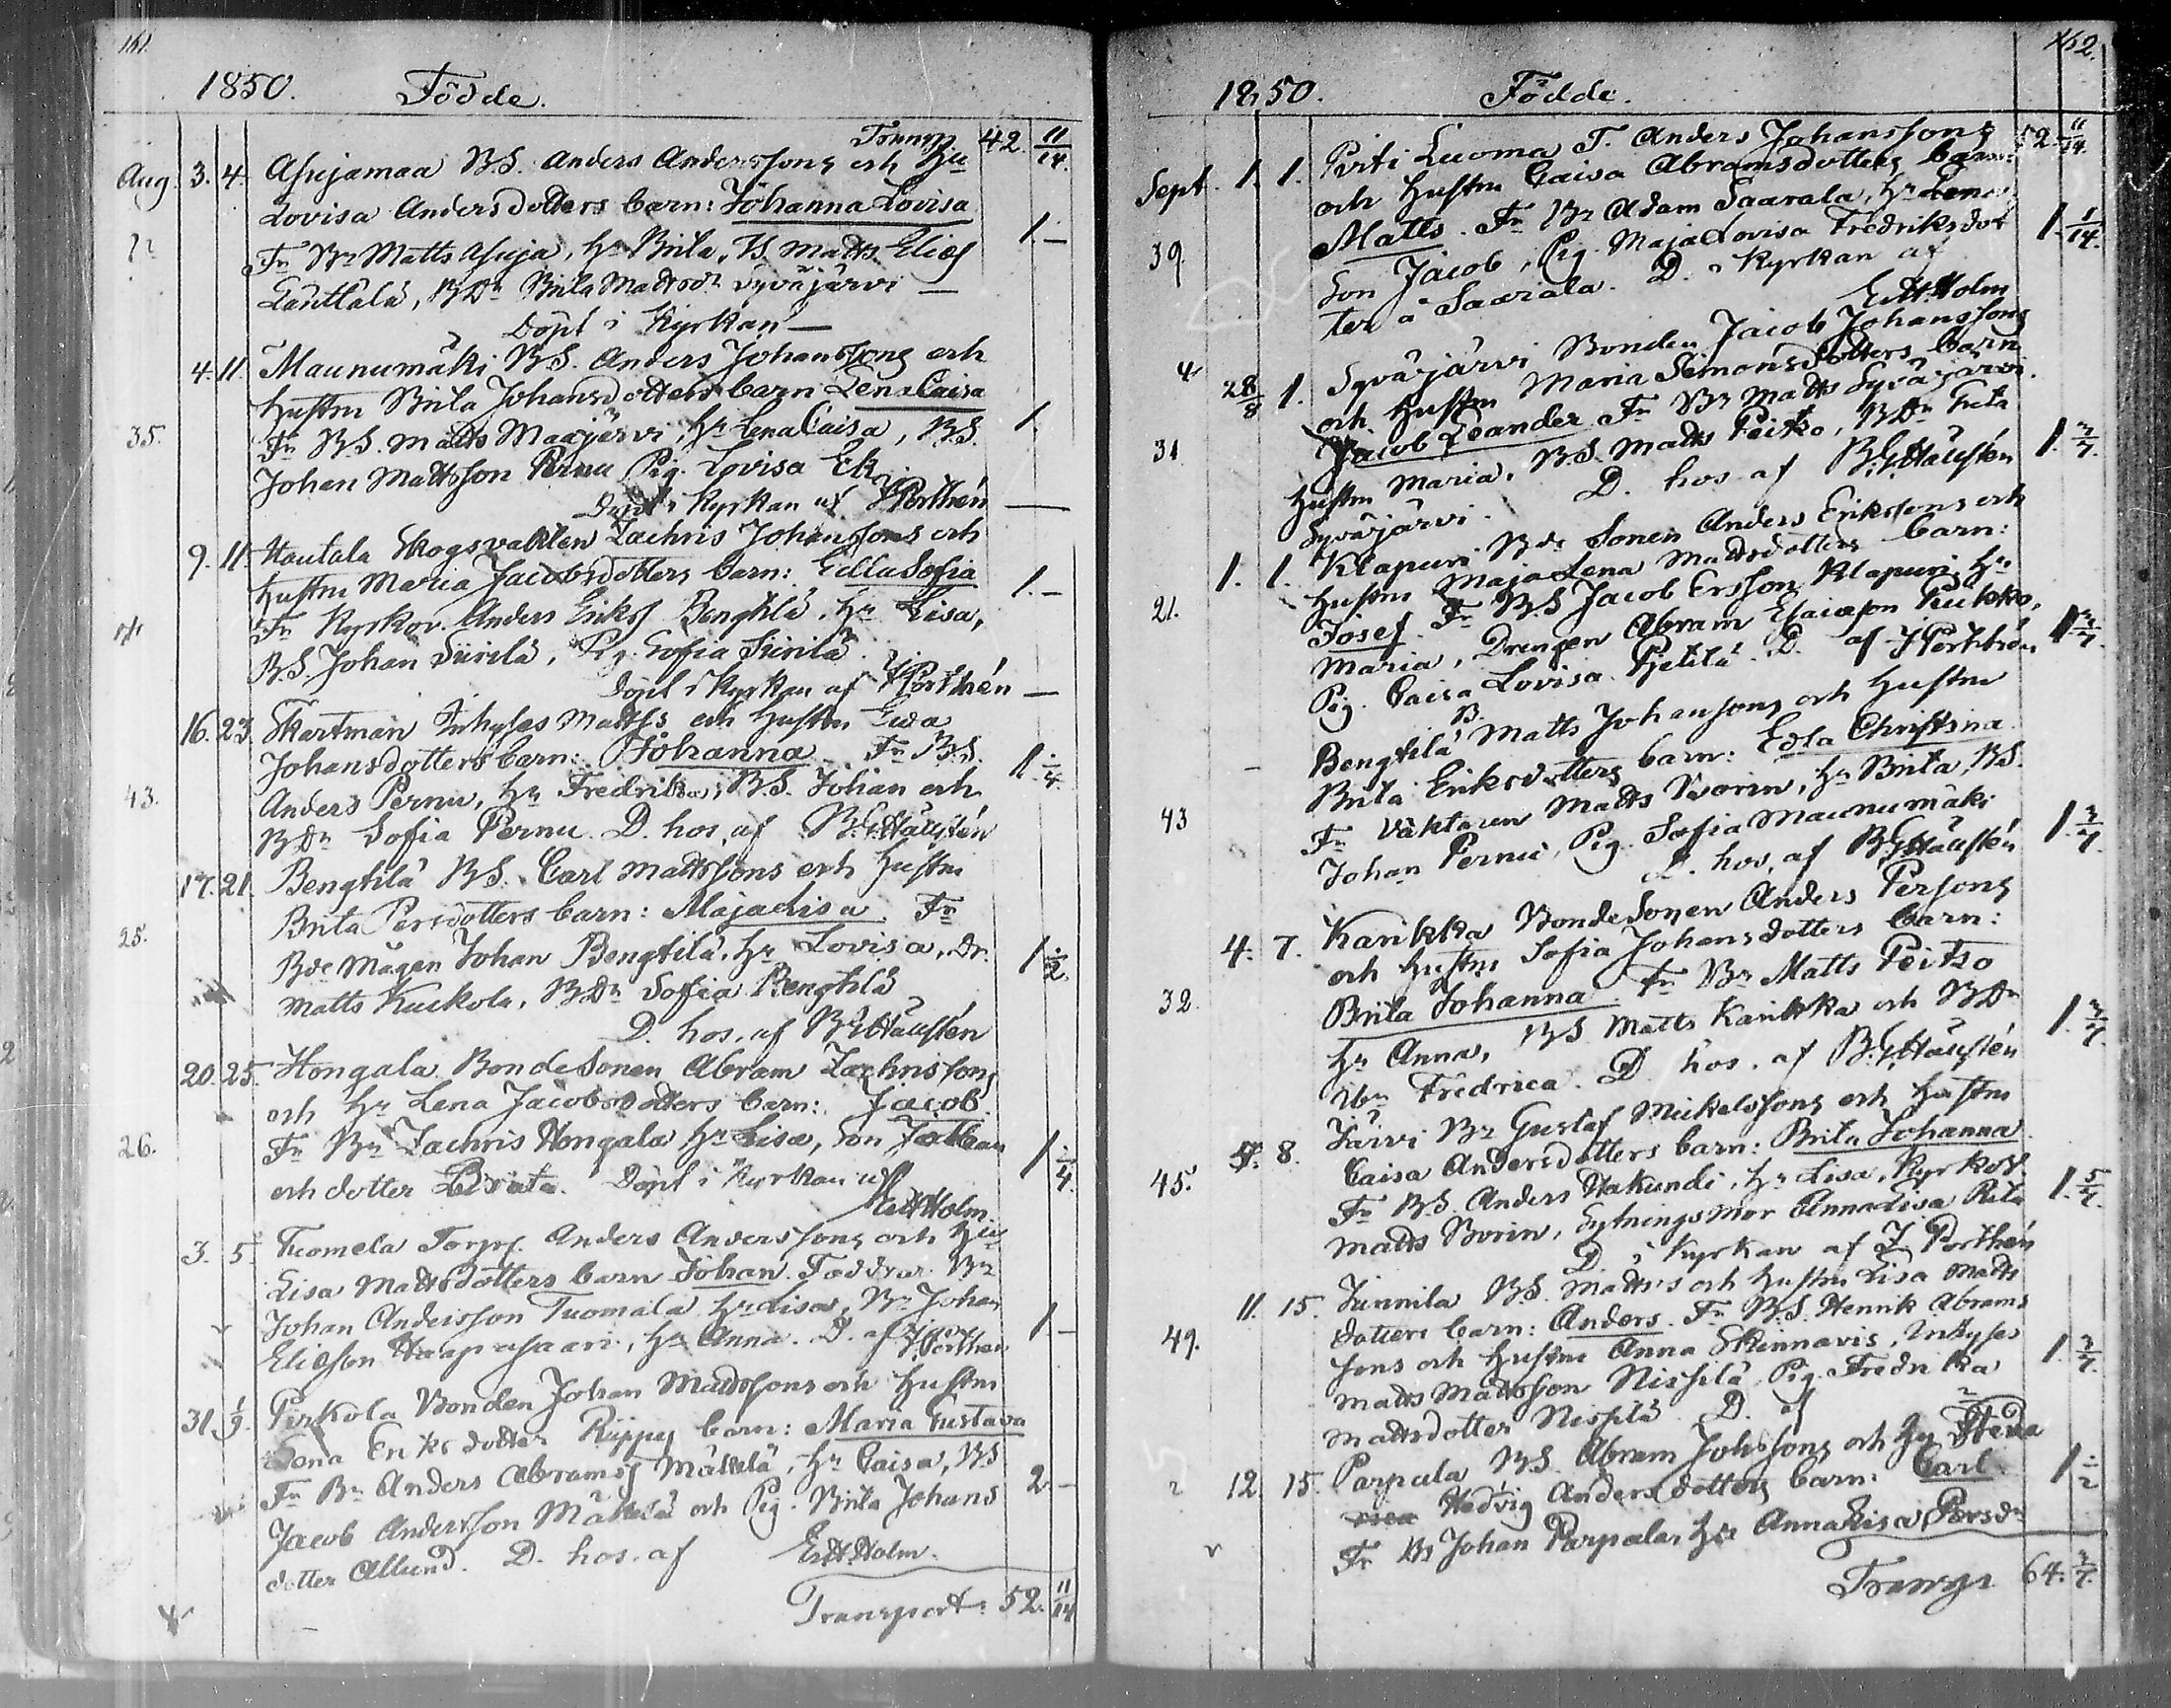 161.
1850. Födde.
Transp. 42. 11/14.
Aug. 3. 4. Asujamaa B.S. Anders Anderssons och Hu
Lovisa Andersdotters barn: Johanna Lovisa
Fr Br Matts Asuja, Hr Brita, B.S. Matts Elias 1. –
Lanttala, BDr Brita Mattsdr Syväjärvi –
Döpt i Kyrkan –
4. 11. Maunumäki B.S. Anders Johanssons och
Hustru Brita Johansdotters barn Lena Caisa
35. Fr B.S. Matts Maajärvi, Hr Lena Caisa, B.S. 1.
Johan Mattsson Pernu Pig. Lovisa Ek
Döpt i Kyrkan af J Porthén –
9. 11. Hautala Skogsvakten Zachris Johanssons och
Hustru Maria Jacobsdotters barn: Edla Sofia
Fr Kyrkov. Anders Eriks Bengtilä, Hr Lisa, 1. –
B.S. Johan Siirilä, Pig. Sofia Siirilä.
Döpt i Kyrkan af J Porthén –
16. 23. Skartman Inhyses Matts's och Hustru Eva
Johansdotters barn: Johanna Fr B.S.
43. Anders Pernu, Hr Fredrika, B.S. Johan och 1. –/4.
BDr Sofia Pernu. D. hos. af B.G. Hausén
17. 21. Bengtilä B.S. Carl Mattssons och Hustru
Brita Persdotters barn: Maja Lisa. Fr
25. Bde Mågen Johan Bengtilä, Hr Lovisa, Dr. 1. –/2.
Matts Kuckola, BDr Sofia Bengtilä
D. hos. af B.G. Hausén
20. 25. Hongala Bondesonen Abram Zachrissons
och Hr Lena Jacobsdotters barn: Jacob
26. Fr Br Zachris Hongala Hr Lisa, Son
och dotter Döpt i Kyrkan af 1 –/4.
Holm.
3. 5. Tuomela Torp. Anders Anderssons och Hu
Lisa Mattsdotters barn Johan. Faddrar Br
Johan Andersson Tuomala Hr Lisa, Br Johan
Eliesson Haapasaari, Hr Anna. D. af J Porthén 1 –
31. 1/9. Pirkola Bonden Johan Mattssons och Hustru
Lena Eriksdotter barn: Maria Gustava
Fr Br Anders Abrams Mattila, Hr Caisa, B.S 2 –
Jacob Andersson Mattila och Pig. Brita Johans
dotter Allund. D. hos. af Holm.
Transport: 52. 11/14
162.
1850. Födde.
52. 11/14.
Sept. 1. 1. Luoma T. Anders Johanssons
och Hustru Caisa Abramsdotters barn:
39. Matts. Fr Br Adam Saarala, Hr Lena
Son Jacob, Pig. Maja Lovisa Fredriksdot 1 1/14.
ter å Saarala. D. i Kyrkan af
Holm
28/8 1. Syväjärvi Bonden Jacob Johanssons
och Hustru Maria Simonsdotters barn
31 Jacob Leander Fr Br Matts Syväjärvi.
Hustru Maria, B.S. Matts Peitso, BDr Greta 1 3/7.
Syväjärvi. D. hos. af B.G. Hausén
1. 1. Klapuri Bde Sonen Anders Erikssons och
Hustru Maja Lena Mattsdotters barn:
21. Josef Fr B.S Jacob Ersson Klapuri, Hr
Maria, Drengen Abram Esaiasson Kukko, 1 3/7.
Pig. Caisa Lovisa Pietilä. D. af J Porthén
Bengtilä B. Matts Johanssons och Hustru
– Brita Eriksdotters barn: Edla Christina
43 Fr Väktaren Matts Svorin, Hr Brita, B.S.
Johan Pernu, Pig. Sofia Maunumäki 1 3/7.
D. hos. af B.G. Hausén
4. 7. Karikka Bondesonen Anders Perssons
och Hustru Sofia Johansdotters barn:
32. Brita Johanna Fr Br Matts Peitso
Hr Anna, B.S Matts Karikka och BDr 1 3/7.
Fredrica. D. hos. af B.G. Hausén
8. Järvi Br Gustaf Mickelssons och Hustru
Caisa Andersdotters barn: Brita Johanna
45. Fr B.S. Anders Hakundi, Hr Lisa, Kyrkov. 1 5/7.
Matts Borin, Sytningsmor Anna Lisa
D. i Kyrkan af J. Porthén
11. 15. Junnila B.S. Matts's och Hustru Lisa Matts
49. dotters barn: Anders. Fr B.S. Henrik Abrams
sons och Hustru Anna Skinnavis, Inhyses
Matts Mattsson Nissilä Pig. Fredrika 1 3/7.
Mattsdotter Nissilä D. af
12. 15. Parpala B.S. Abram Johssons och Hu
Hedvig Andersdotters barn: Carl 1 –/2
Fr Br Johan Parpala Hr Anna Lisa Persdr
Transp 64. 3/7.